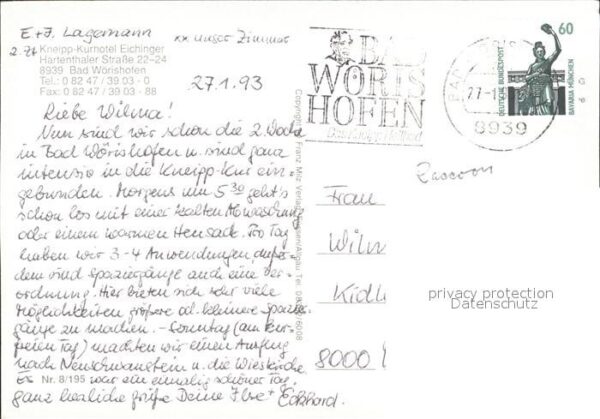 E+J. Lagemann
z. Zt.
Kneipp-Kurhotel Eichinger
Hartenthaler Straße 22-24
8939 Bad Wörishofen
Tel.: 0 82 47 / 39 03 - 0
Fax: 0 82 47 / 39 03 - 88
xx unser Zimmer
27.1.93
Liebe Wilma!
Nun sind wir schon die 2. Woche
in Bad Wörishofen u. sind ganz
intensiv in die Kneipp-Kur ein-
gebunden. Morgens um 5 30 geht's
schon los mit einer kalten Abwaschung
oder einem warmen Heusack. Pro Tag
haben wir 3-4 Anwendungen, außer-
dem sind Spaziergänge auch eine Ver-
ordnung. Hier bieten sich sehr viele
Möglichkeiten größere od. kleinere Spazier-
gänge zu machen. - Sonntag (am kur-
freien Tag) machten wir einen Ausflug
nach Neuschwanstein u. die Wieskirche
Es war ein einmalig schöner Tag.
Nr. 8/195
ganz herzliche Grüße Deine Ilse + Eckhard.
BAD
WÖRIS
HOFEN
27.-1.
8939
60
DEUTSCHE BUNDESPOST
BAVARIA MÜNCHEN
Frau
Wilm
Kidl
8000
privacy protection
Datenschutz